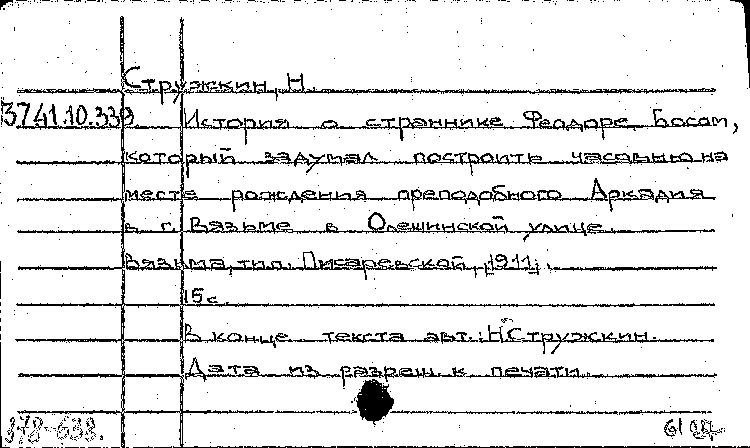 Стружкин, Н.
3741.10.339 История о страннике Феодоре Босом,
который задумал построить часовню на
месте рождения преподобного Аркадия
в г. Вязьме в Олешинской улице.
Вязьма, тип. Писаревской, [1911].
15 с.
В конце текста авт.: Н Стружкин.
Дата из разреш. к печати.
378-638.